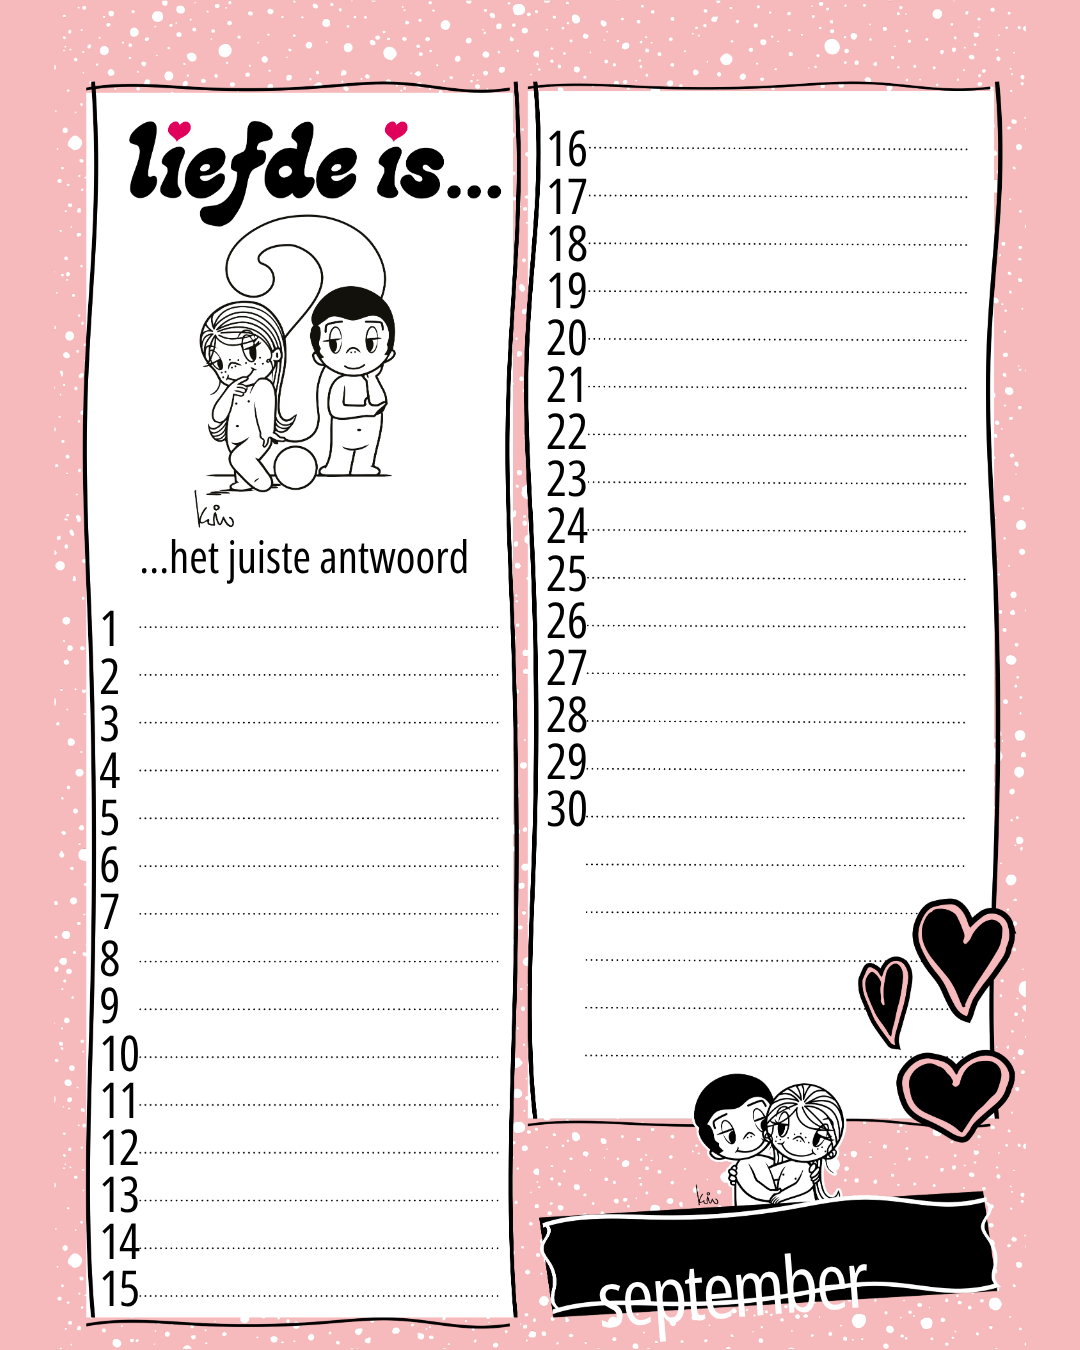 liefde is...
kim
...het juiste antwoord
1
2
3
4
5
6
7
8
9
10
11
12
13
14
15
16
17
18
19
20
21
22
23
24
25
26
27
28
29
30
kim
september